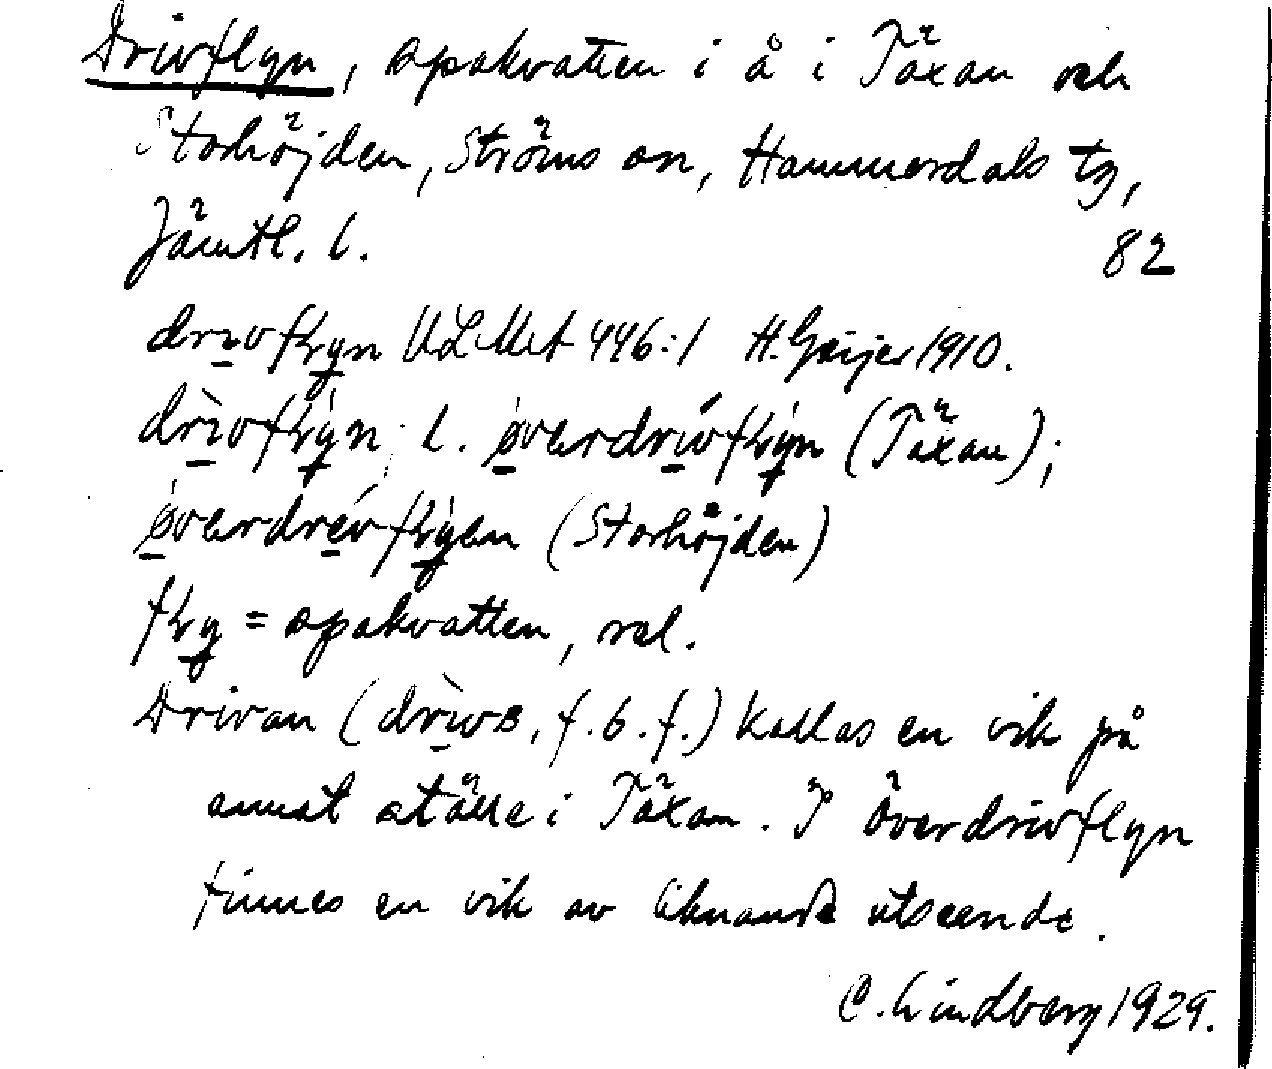 Drivflyn, spakvatten i å i Täxan och
Storhöjden, Ströms sn, Hammerdals tg,
Jämtl. l.
82
drivfɽyn ULMA 446:1 H. Geijer 1910.
drìvfɽýn, l. överdrívfɽỳn (Täxan);
överdrévfɽỳen (Storhöjden)
fɽy = spakvatten, sel.
Drivan (drìvɐ, f. b. f.) kallas en vik på
annat ställe i Täxan. I Överdrivflyn
finnes en vik av liknande utseende.
C. Lindberg 1929.